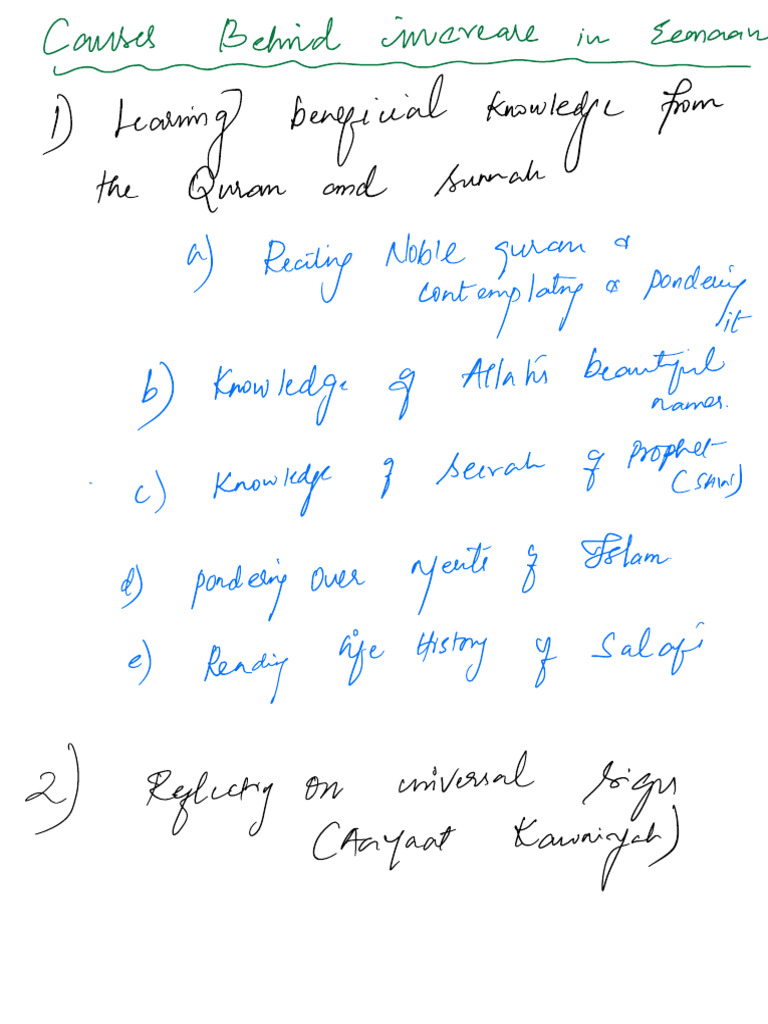 Causes Behind increase in Eemaan
1) Learning beneficial knowledge from
the Quran and sunnah
a) Reciting Noble quran &
contemplating & pondering
it
b) Knowledge of Allah's beautiful
names.
c) Knowledge of seerah of prophet
(SAW)
d) pondering over merits of Islam
e) Reading life History of Salafi
2) Reflecting on universal signs
(Aayaat Kawniyah)